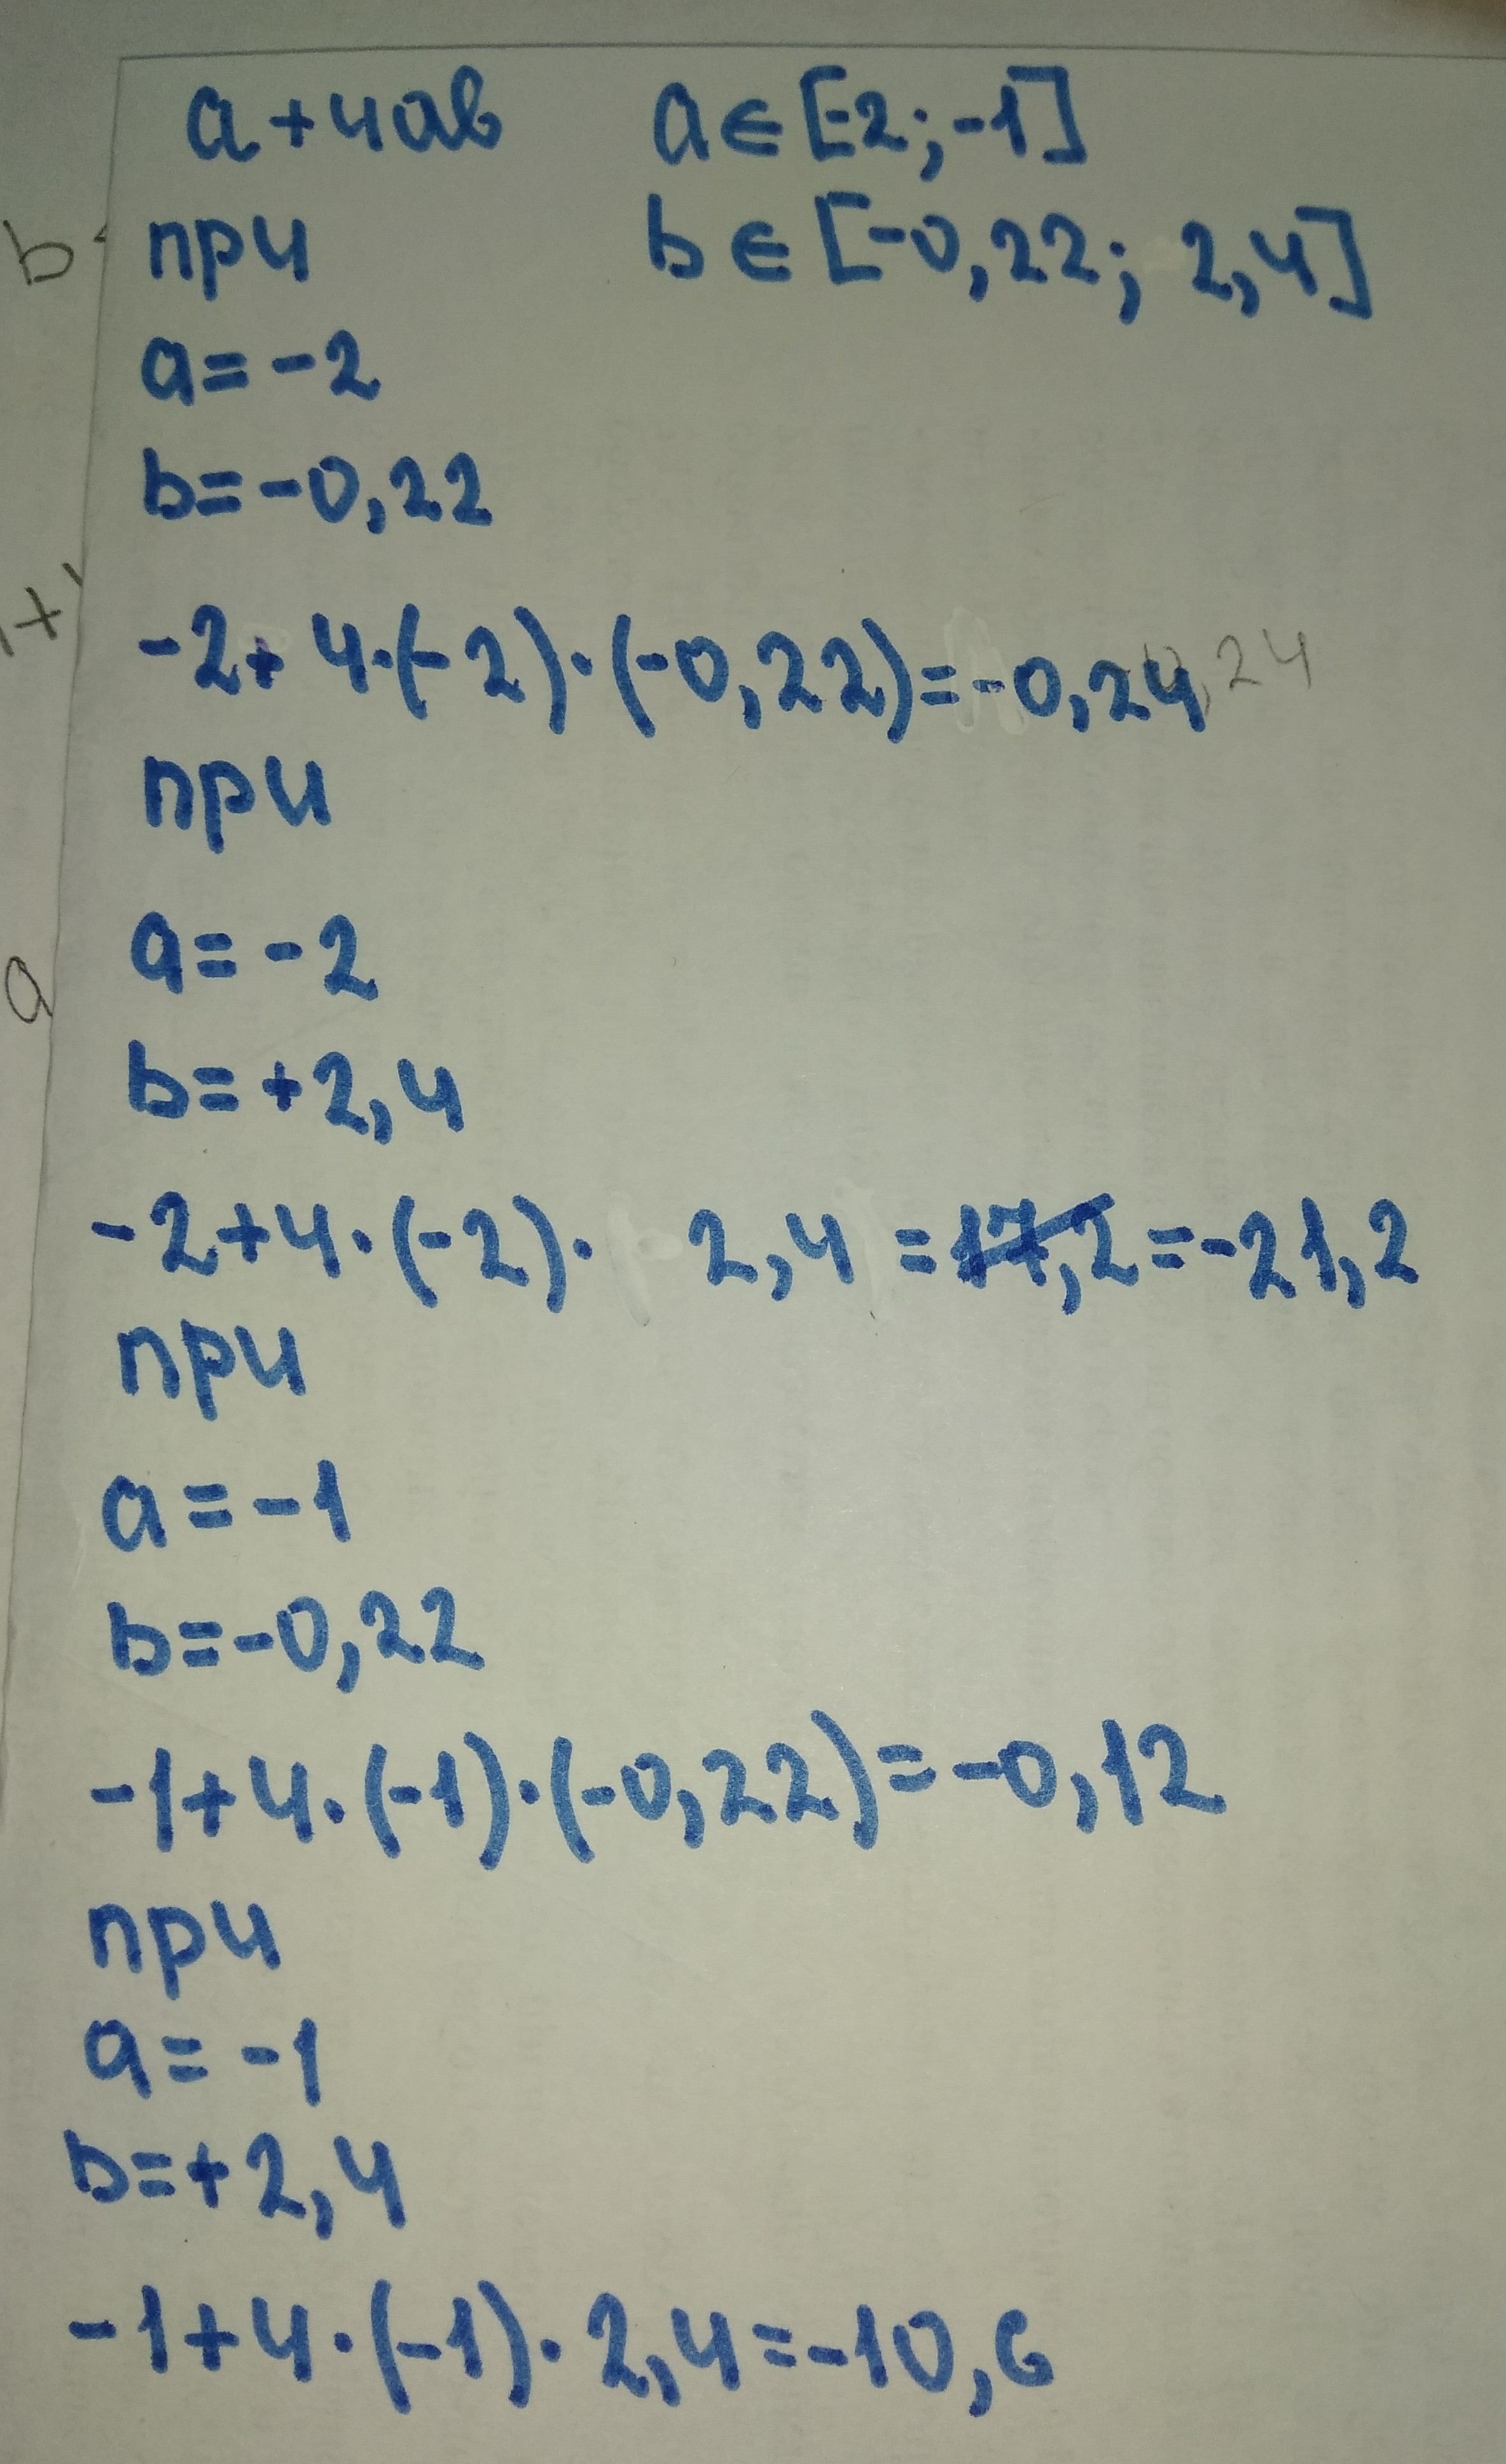 a+4ab a∈[-2;-1]
при b∈[-0,22; 2,4]
a=-2
b=-0,22
-2+4·(-2)·(-0,22)=-0,24
при
a=-2
b=+2,4
-2+4·(-2)· 2,4=17,2=-21,2
при
a=-1
b=-0,22
-1+4·(-1)·(-0,22)=-0,12
при
a=-1
b=+2,4
-1+4·(-1)·2,4=-10,6
b
+
a
,24